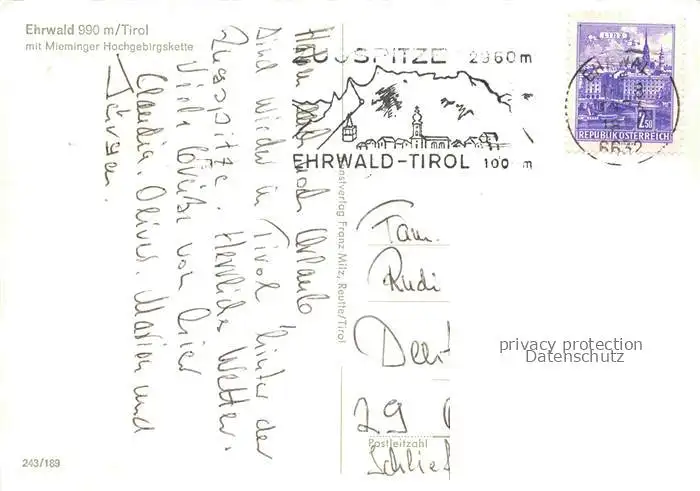 Ehrwald 990 m/Tirol
mit Mieminger Hochgebirgskette
Haben noch Urlaub
sind wieder in Tirol hinter der
Zugspitze. Herrliches Wetter.
Viele Grüße von hier
Claudia, Oliver, Marion und
Jürgen.
243/189
Kunstverlag Franz Milz, Reutte/Tirol
UGSPITZE 2960 m
EHRWALD-TIROL 100 m
LINZ
2.50
REPUBLIK ÖSTERREICH
EHRWAL
6632
Fam.
Rudi
29
Postleitzahl
privacy protection
Datenschutz